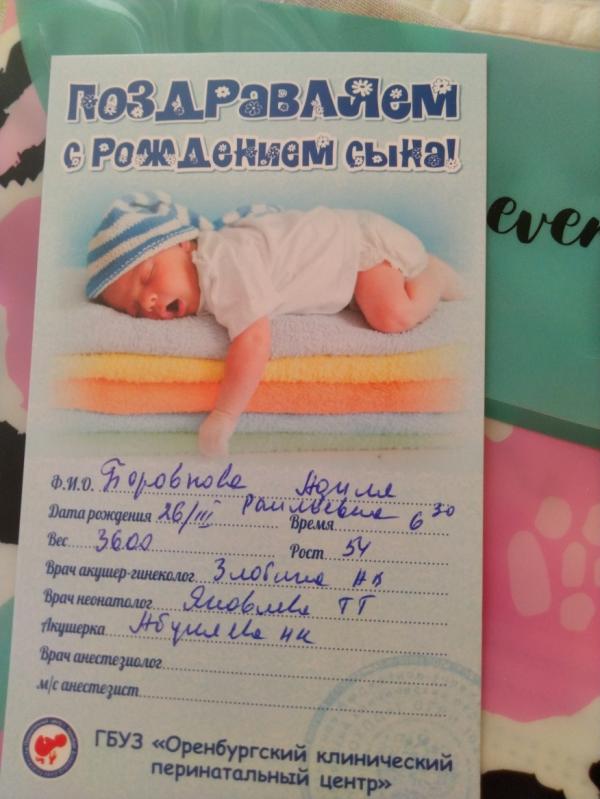 ПОЗДРАВЛЯЕМ
С РОЖДЕНИЕМ СЫНА!
ever
Ф.И.О. Боровкова Адиля
Раильевна
Дата рождения 26/III Время 6 30
Вес 3600 Рост 54
Врач акушер-гинеколог Злобина НВ
Врач неонатолог Яковлева ТТ
Акушерка НН
Врач анестезиолог
м/с анестезист
ГБУЗ «Оренбургский клинический
перинатальный центр»